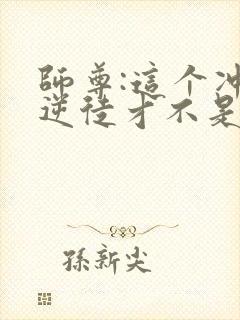 師尊:這个冲
逆徒才不是
孫新尖